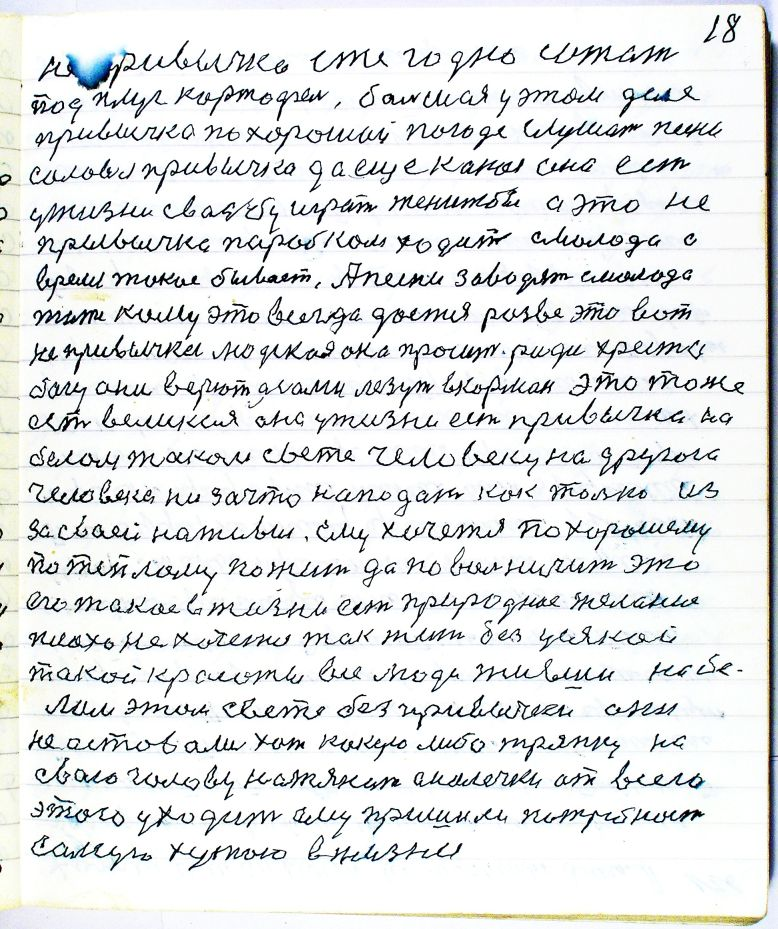 18
не привычка ежегодно сажат
под плуг картофел, балшая у этом деле
привычка по хорошай погоде слушат песни
соловя привычка да еще какая она ест
ужизни свадбу играт женитбы а это не
привычка парабком ходит смолода с
время такое бывает. А песни заводят смолода
жит кому это всегда дается разве это вот
не привычка людская она просит ради христа
богу они верют а сами лезут в карман это тоже
ест великая она ужизни ест привычка на
белом таком свете человеку на другога
человека ни зачто нападат как толко из
за своей наживы. ему хочется по хорошему
по теплому пожит да поволничит это
его такое в жизни ест природное желание
плохо не хочется так жит без усякой
такой красоты все люди жившии на бе-
лом этом свете без привычкей они
не оставали хот какую либо тряпку на
сваю голову натянат от всего
этого уходит ему пришили потребност
самую худшою в жизни